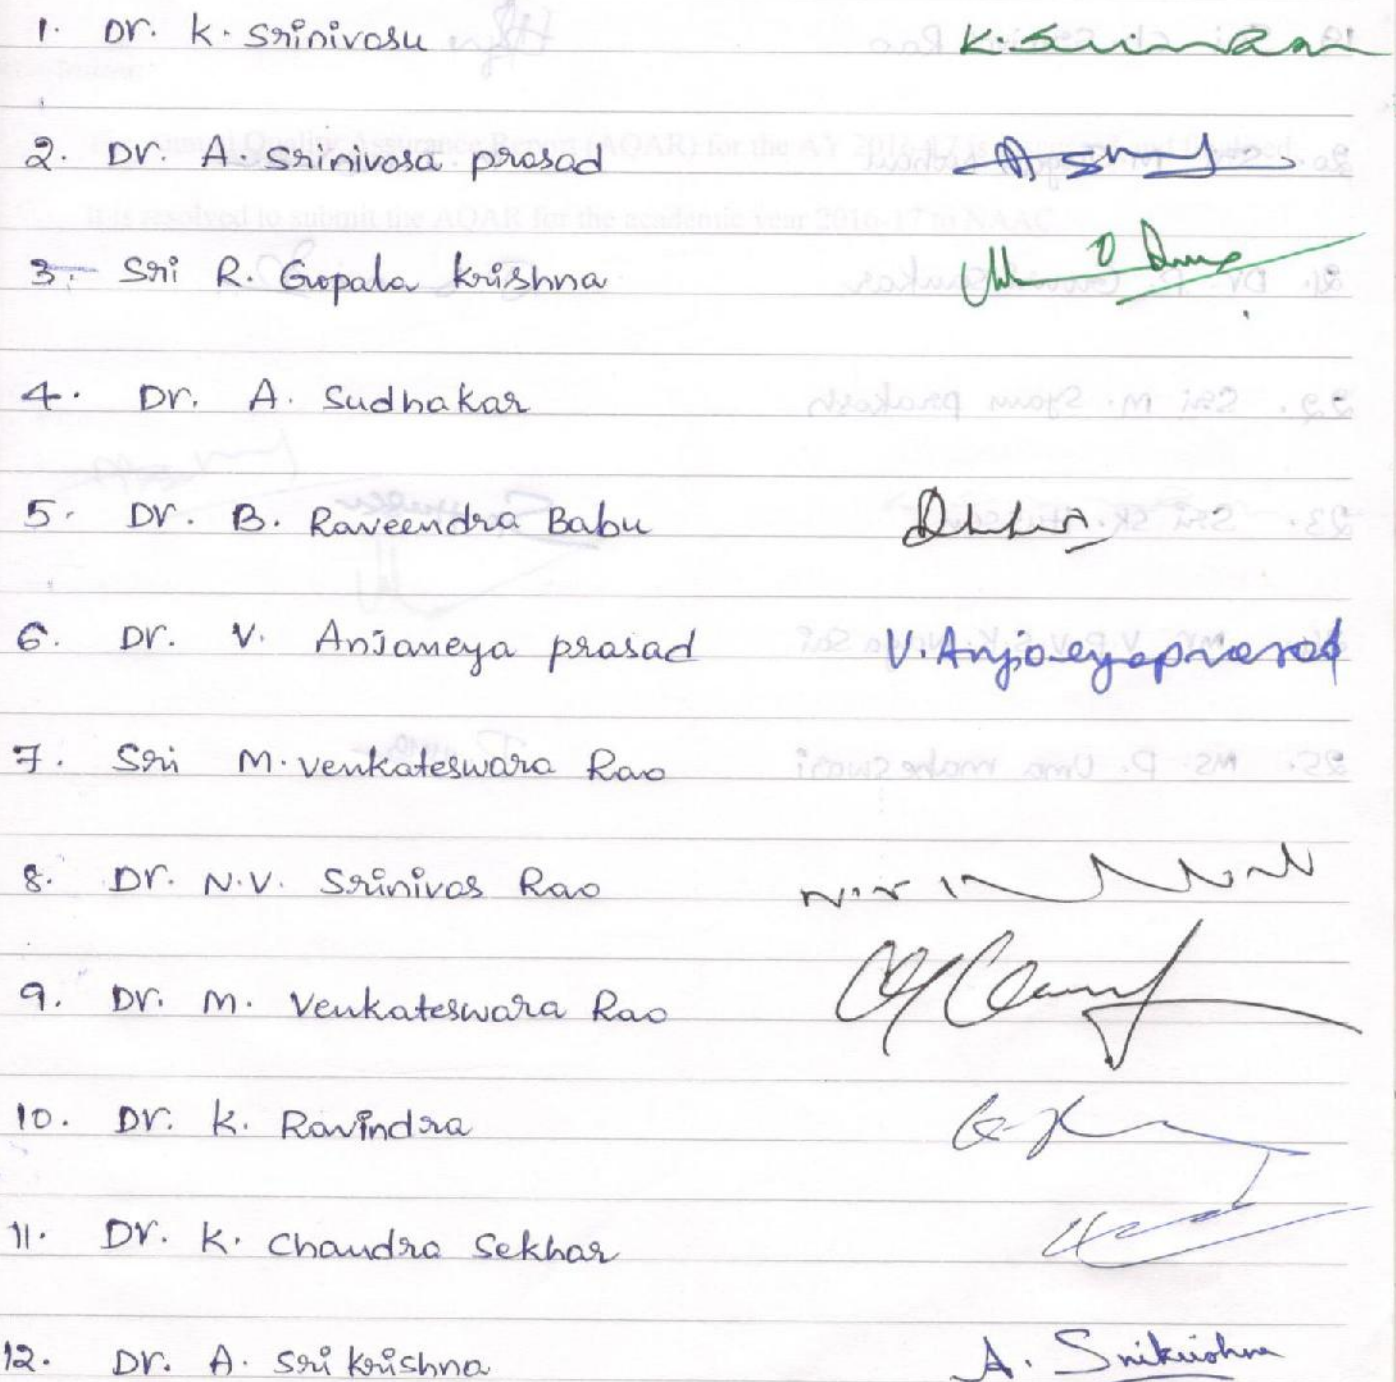 1. Dr. K. Srinivasu K. Srinivasu
2. Dr. A. Srinivasa prasad
3. Sri R. Gopala Krishna
4. Dr. A. Sudhakar
5. Dr. B. Raveendra Babu
6. Dr. V. Anjaneya prasad V. Anjaneyaprasad
7. Sri M. Venkateswara Rao
8. Dr. N.V. Srinivas Rao
9. Dr. M. Venkateswara Rao
10. Dr. K. Ravindra
11. Dr. K. Chandra Sekhar
12. Dr. A. Sri Krishna A. Srikrishna